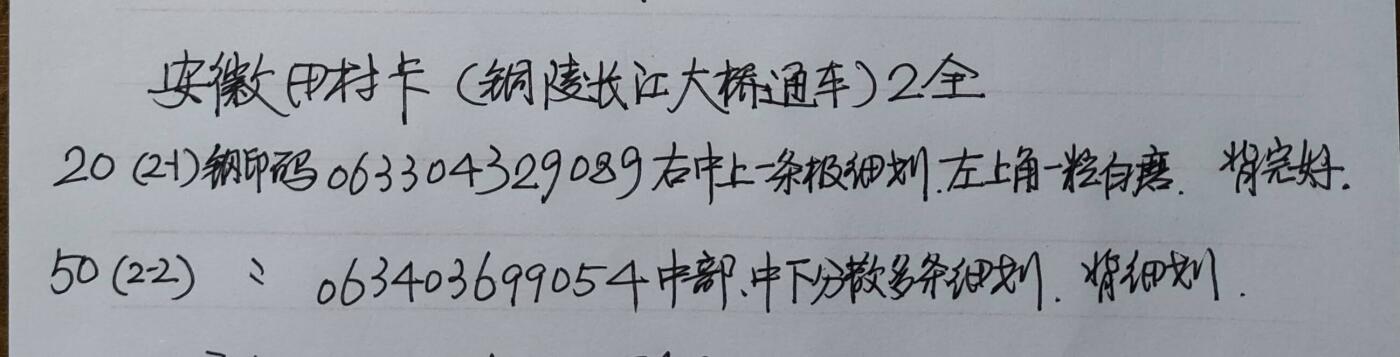 安徽田村卡（铜陵长江大桥通车）2全
20 (2-1) 钢印码 063304329089 右中上一条极细划.左上角一粒白磨. 背完好.
50 (2-2) 〃 063403699054 中部、中下分散多条细划. 背细划.